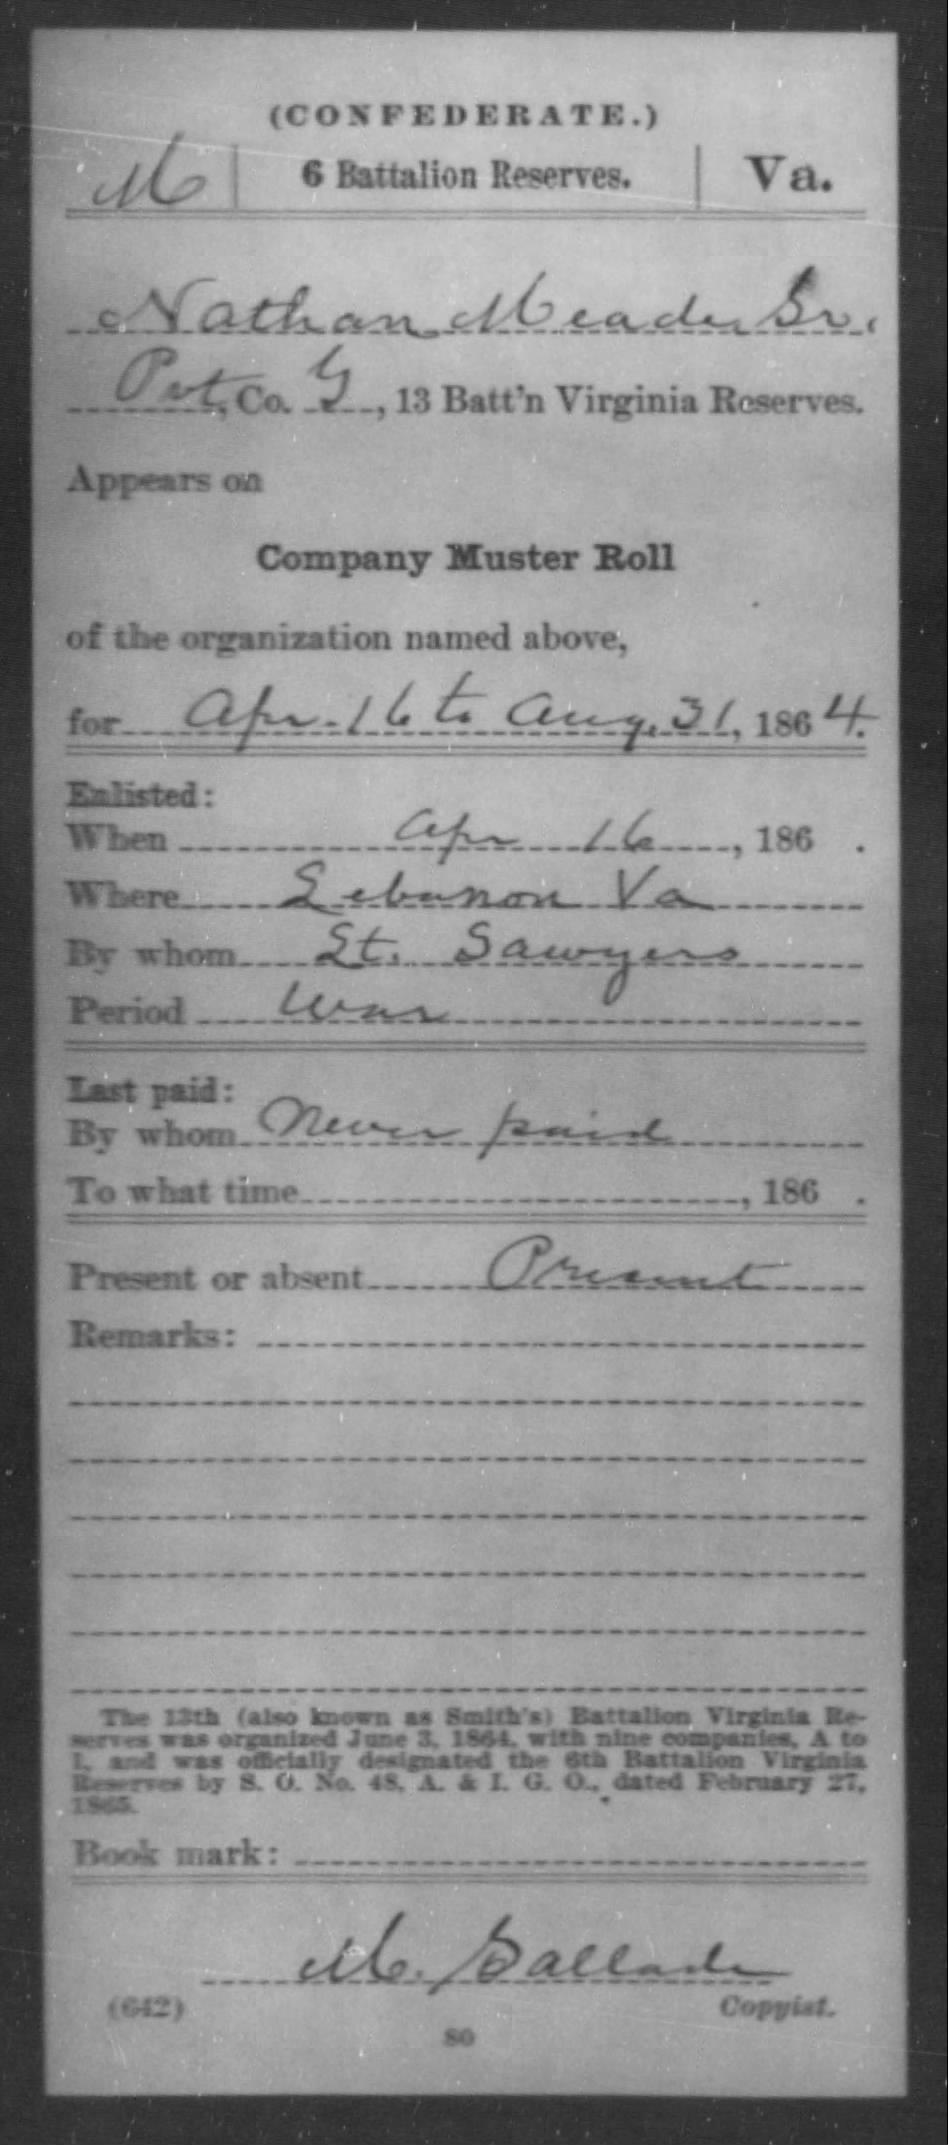 (CONFEDERATE.)
M | 6 Battalion Reserves. | Va.
Nathan Meade Sr.
Pvt, Co. G, 13 Batt'n Virginia Reserves.
Appears on
Company Muster Roll
of the organization named above,
for Apr. 16 to Aug. 31, 1864.
Enlisted:
When Apr 16, 186 .
Where Lebanon Va
By whom Lt. Sawyers
Period War
Last paid:
By whom Never paid
To what time, 186 .
Present or absent Present
Remarks:
The 13th (also known as Smith's) Battalion Virginia Re-
serves was organized June 3, 1864, with nine companies, A to
I, and was officially designated the 6th Battalion Virginia
Reserves by S. O. No. 48, A. & I. G. O., dated February 27,
1865.
Book mark:
M.
(642) Copyist.
80